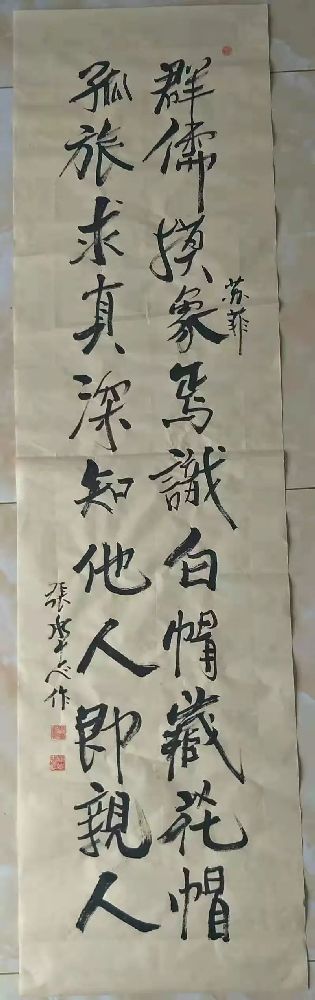 苏菲
群儒摸象焉識白帽藏花帽
孤旅求真深知他人即親人
張承志作